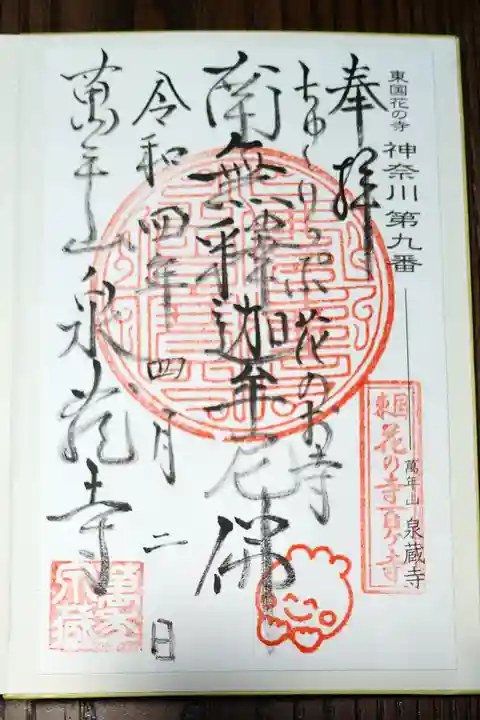 東国花の寺 神奈川第九番
萬年山 泉蔵寺
奉拝
ちゅーりっぷ花のお寺
南無釋迦牟尼佛
令和四年四月二日
萬年山泉蔵寺
東国花の寺百ヶ寺